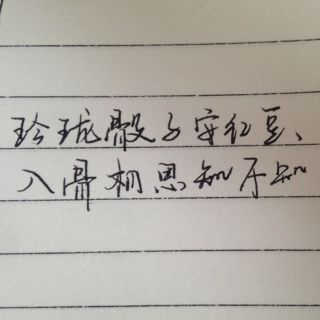 玲珑骰子安红豆、
入骨相思知不知